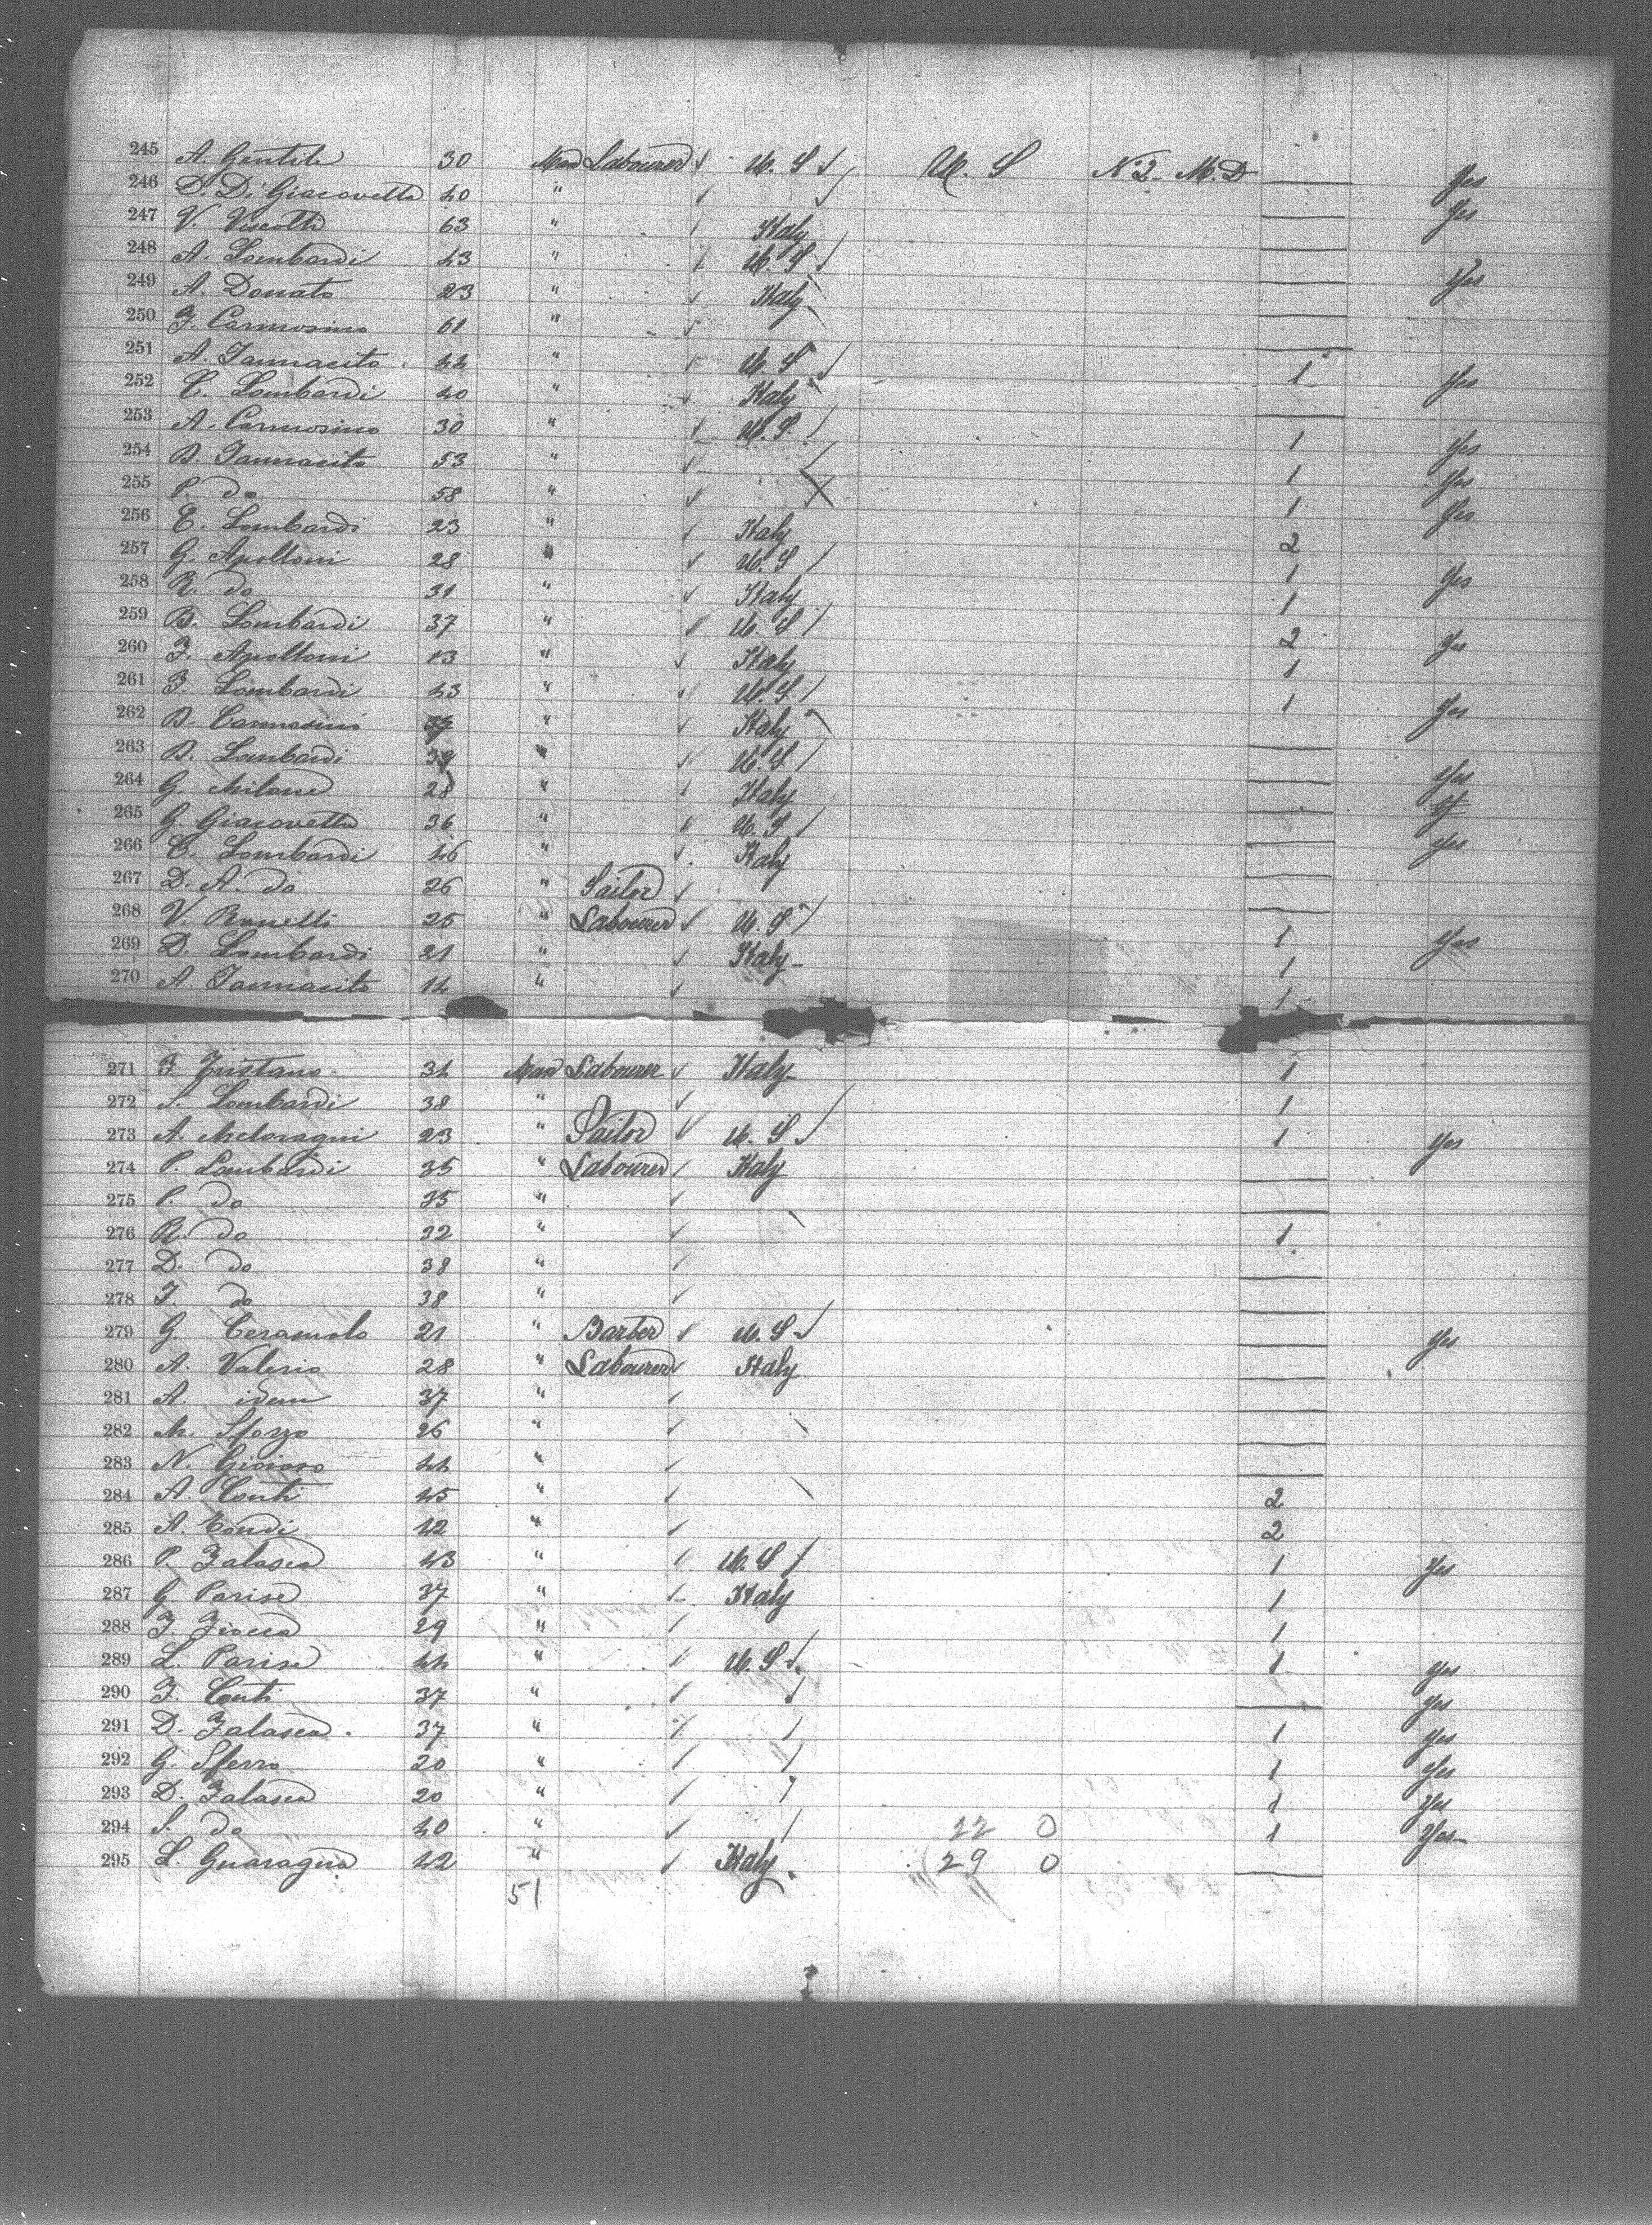 245 A. Gentile 30 Man Labourer ✓ U. S ✓ U. S No 2 - M. D — Yes
246 D. Di Giacovetta 40 " ✓ ✓ — Yes
247 V. Viscotti 63 " Italy —
248 A. Lombardi 43 " U. S ✓ — Yes
249 A. Donato 23 " ✓ Italy —
250 F. Carmosino 61 " ✓ —
251 A. Iannacito 44 " U. S ✓ 1 Yes
252 C. Lombardi 40 " ✓ Italy —
253 A. Carmosino 30 " U. S. / 1 Yes
254 D. Iannacito 53 " ✓ / 1 Yes
255 P. do 58 " ✓ X 1 Yes
256 E. Lombardi 23 " ✓ Italy 2
257 G. Apolloni 28 " ✓ U. S / 1 Yes
258 R. do 31 " ✓ Italy 1
259 B. Lombardi 37 " ✓ U. S / 2 Yes
260 F. Apolloni 13 " ✓ Italy 1
261 F. Lombardi 43 " ✓ U. S / 1 Yes
262 D. Carmosini " ✓ Italy —
263 D. Lombardi 39 " ✓ U. S / — Yes
264 G. Milano 28 " Italy —
265 G. Giacovetta 36 " ✓ U. S / — Yes
266 C. Lombardi 46 " ✓ Italy —
267 D. A. do 26 " Sailor ✓ —
268 V. 25 " Labourer ✓ U. S / 1 Yes
269 D. Lombardi 21 " ✓ Italy - 1
270 A. Iannacito 14 " ✓ 1
271 F. 34 Man Labourer ✓ Italy - 1
272 S. Lombardi 38 " ✓ 1
273 A. 23 " Sailor ✓ U. S ✓ 1 Yes
274 P. Lombardi 35 " Labourer ✓ Italy —
275 P. do 35 " ✓ —
276 R. do 32 " ✓ 1
277 D. do 38 " ✓ —
278 F. do 38 " ✓ —
279 G. 21 " Barber ✓ U. S ✓ — Yes
280 A. Valerio 28 " Labourer ✓ Italy —
281 A. idem 37 " ✓ —
282 M. Sforzo 26 " ✓ —
283 N. Gioioso 44 " ✓ —
284 A. Conti 45 " ✓ 2
285 A. 42 " ✓ 2
286 P. Falasca 43 " ✓ U. S / 1 Yes
287 G. Parise 37 " ✓ Italy 1
288 F. Fiocca 29 " ✓ 1
289 L. Parise 44 " ✓ U. S ✓ 1 Yes
290 F. Conti 37 " ✓ ✓ — Yes
291 D. Falasca 37 " ✓ / 1 Yes
292 G. Sferra 20 " ✓ / 1 Yes
293 D. Falasca 20 " ✓ / 1 Yes
294 S. do 40 " ✓ / 22 0 1 Yes
295 L. Guaragna 42 " ✓ Italy 29 0 —
51